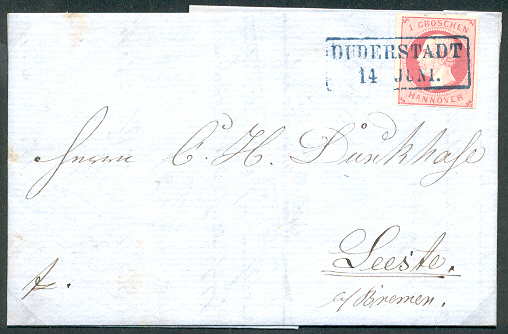 1 GROSCHEN
DUDERSTADT
14 JUNI.
HANNOVER
Herrn C. H. Dünkhase
Leeste.
a/Bremen.
fr.